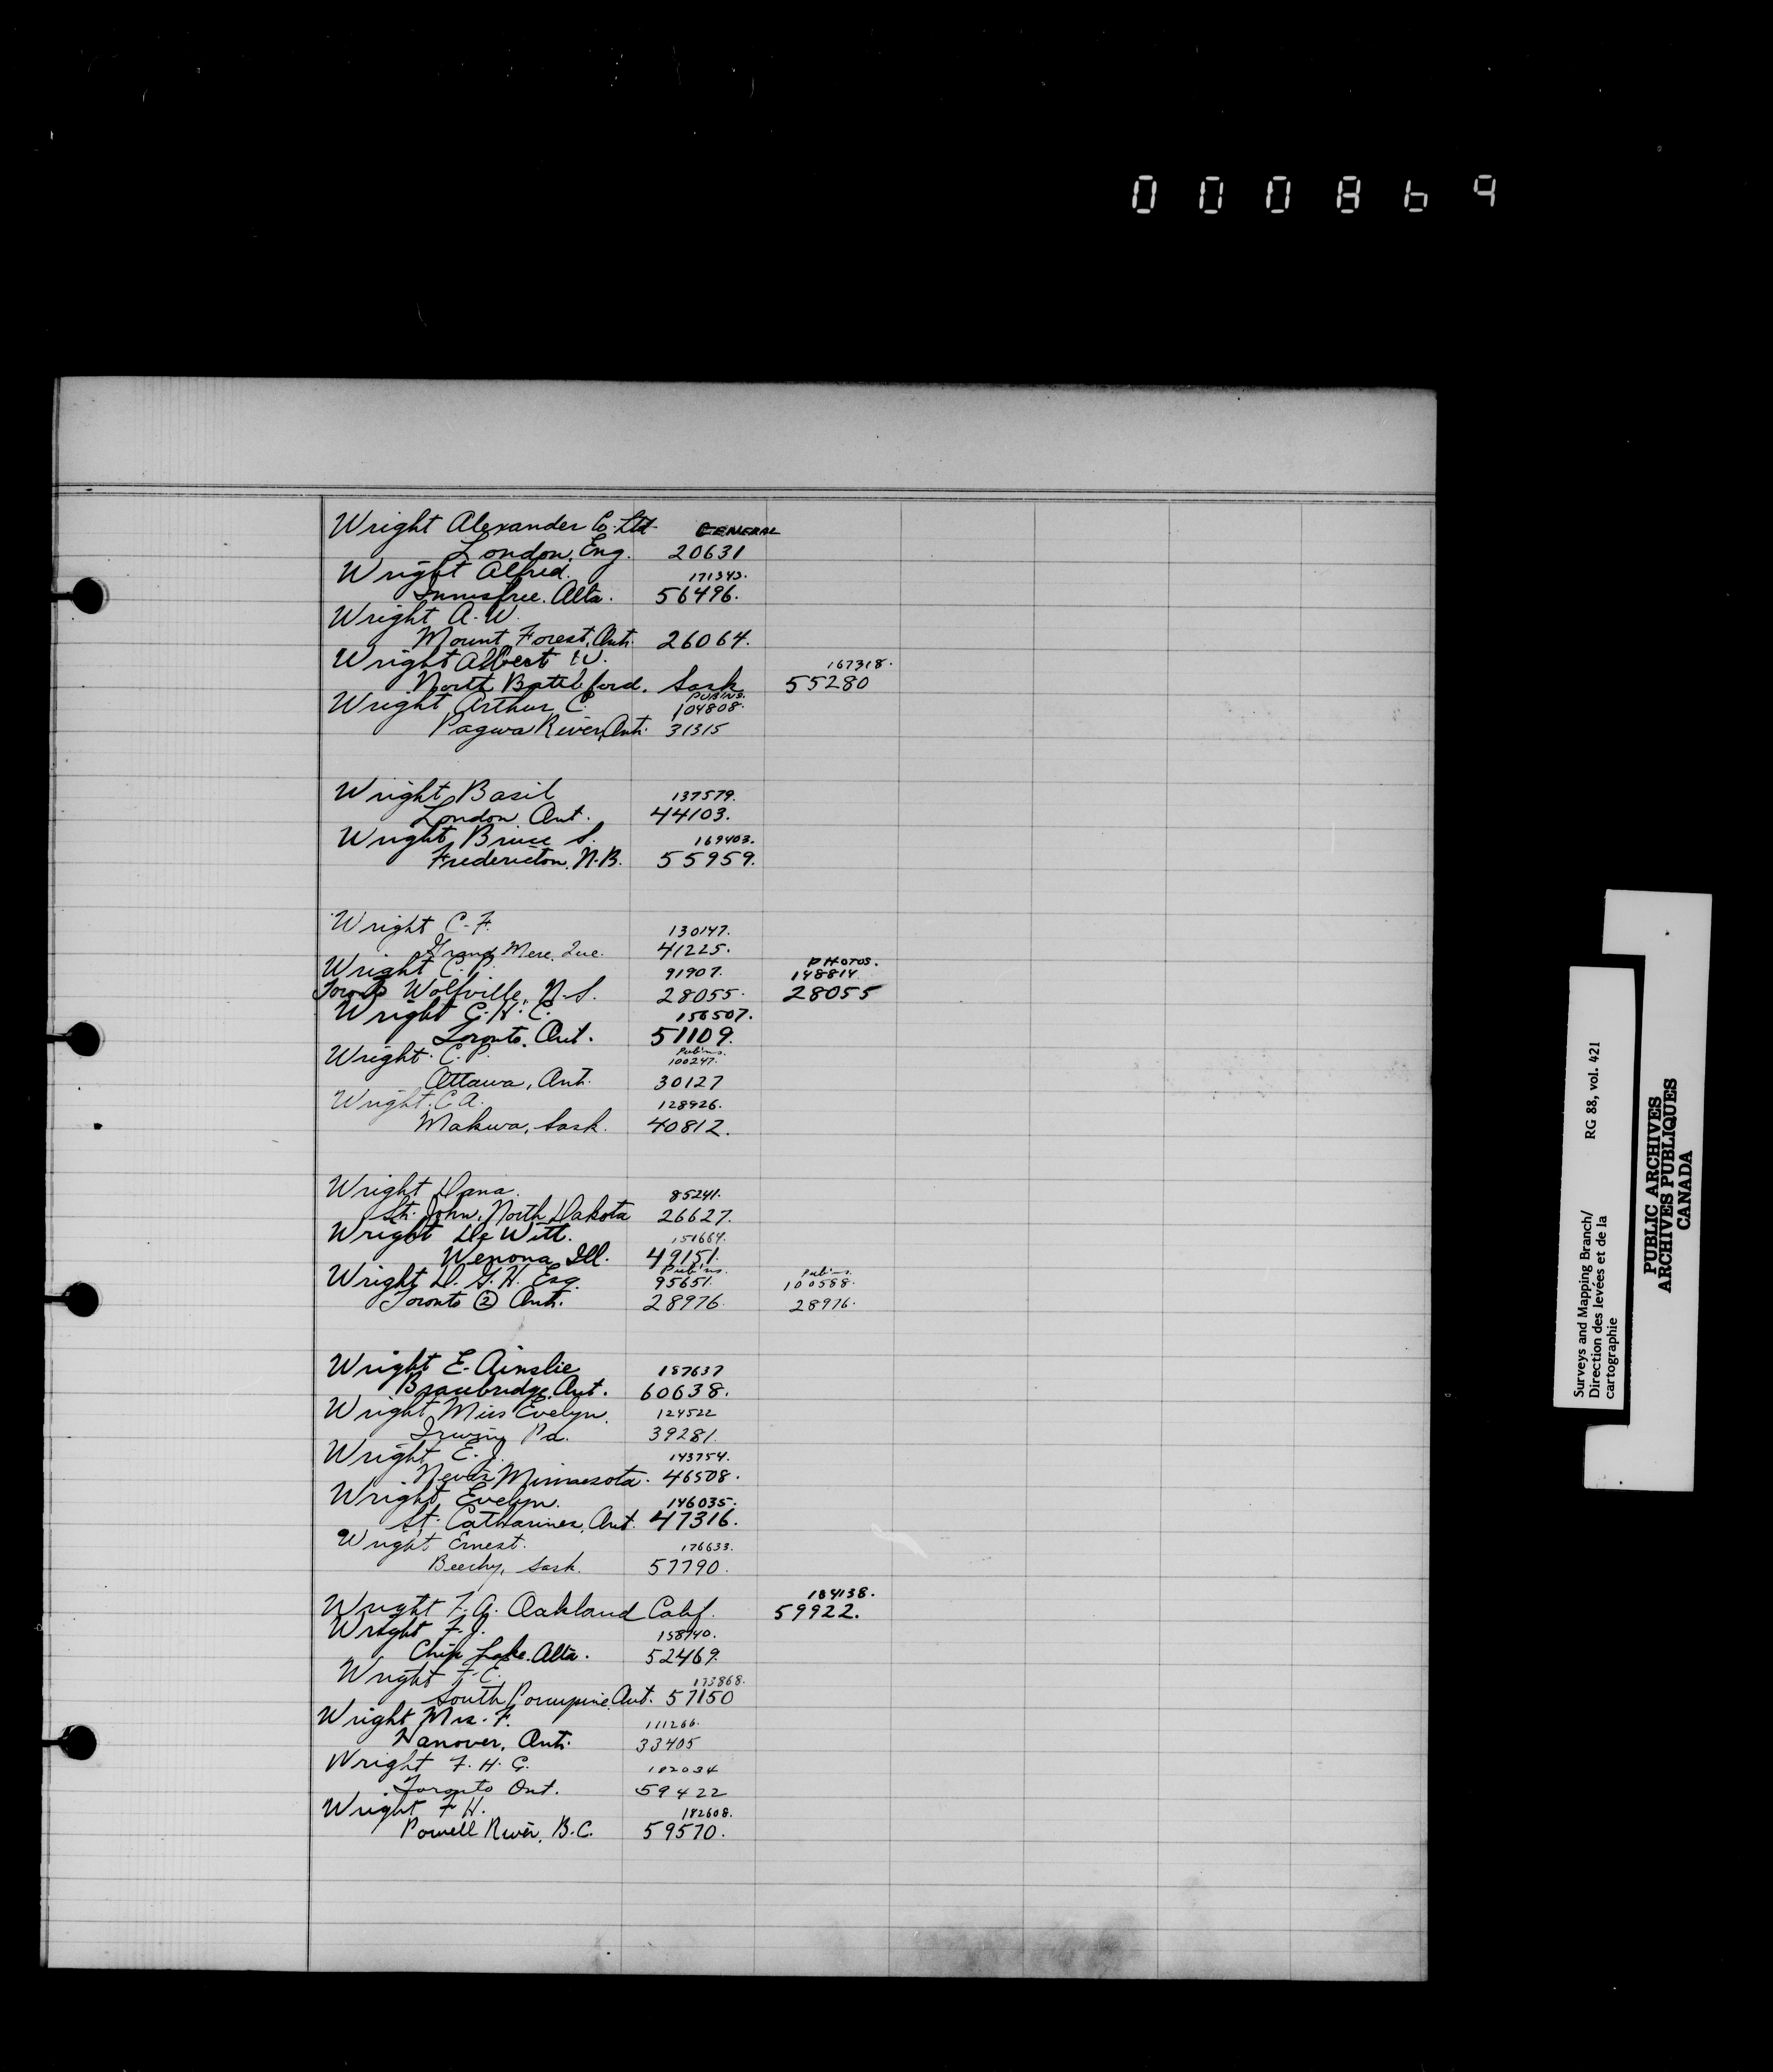 000869
Wright Alexander Co. Ltd. GENERAL
London, Eng. 20631
Wright Alfred. 171343.
Innisfree. Alta. 56496.
Wright A. W.
Mount Forest, Ont. 26064.
Wright Albert W. 167318.
North Battleford, Sask. 55280
PUB'NS.
Wright Arthur C. 104808.
Pagwa River, Ont. 31315
Wright Basil 137579.
London Ont. 44103.
Wright Bruce S. 169403.
Fredericton, N.B. 55959.
Wright C. F. 130147.
Grand Mere, Que. 41225.
PHOTOS.
Wright C. P. 91907. 148814
Wolfville, N.S. 28055. 28055
Wright C. H. C. 156507.
Toronto, Ont. 51109.
Pub'ns.
Wright. C. P. 100247.
Ottawa, Ont. 30127
Wright. C. A. 128926.
Makwa, Sask. 40812.
Wright Dana. 85241.
St. John, North Dakota 26627.
Wright De Witt. 151664.
Wenona, Ill. 49151.
Pub'ns. Pub'ns.
Wright D. G. H. Esq. 95651. 100588.
Toronto ② Ont. 28976. 28976.
Wright E. Ainslie 187637
Bracebridge, Ont. 60638.
Wright Miss Evelyn. 124522
Irwin, Pa. 39281.
Wright E. J. 143754.
Nevis Minnesota. 46508.
Wright Evelyn. 146035.
St. Catharines, Ont. 47316.
Wright Ernest. 176633.
Beechy, Sask. 57790.
184138.
Wright F. A. Oakland Calif. 59922.
Wright F. J. 158740.
Chip Lake. Alta. 52469.
Wright F. E. 173868.
South Porcupine, Ont. 57150
Wright Mrs. F. 111266.
Hanover, Ont. 33405
Wright F. H. G. 182034
Toronto Ont. 59422
Wright F H. 182608.
Powell River, B.C. 59570.
Surveys and Mapping Branch/ RG 88, vol. 421
Direction des levées et de la
cartographie
PUBLIC ARCHIVES
ARCHIVES PUBLIQUES
CANADA